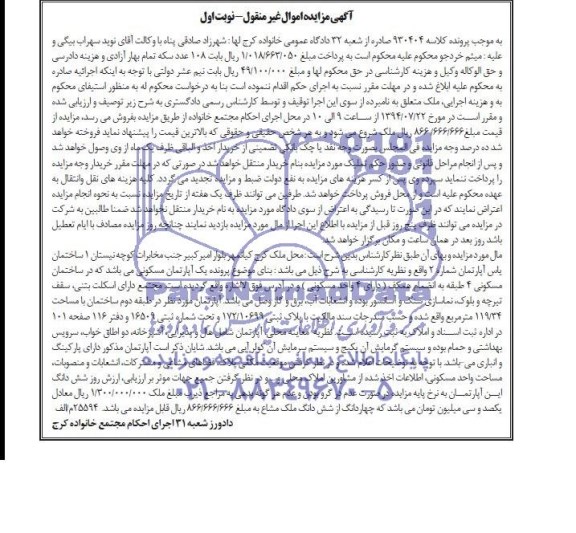 آگهی مزایده اموال غیر منقول - نوبت اول
به موجب پرونده کلاسه ۹۳۰۴۰۴ صادره از شعبه ۳۲ دادگاه عمومی خانواده کرج لها: شهرزاد صادقی پناه با وکالت آقای نوید سهراب بیگی و
علیه: میثم خردجو محکوم علیه محکوم است به پرداخت مبلغ ۱/۰۱۸/۶۶۳/۰۵۰ ریال بابت ۱۰۸ عدد سکه تمام بهار آزادی و هزینه دادرسی
و حق الوکاله وکیل و هزینه کارشناسی در حق محکوم لها و مبلغ ۴۹/۱۰۰/۰۰۰ ریال بابت نیم عشر دولتی با توجه به اینکه اجرائیه صادره
به محکوم علیه ابلاغ شده و در مهلت مقرر نسبت به اجرای حکم اقدام ننموده است بنا به درخواست محکوم له به منظور استیفای محکوم
به و هزینه اجرایی، ملک متعلق به نامبرده از سوی این اجرا توقیف و توسط کارشناس رسمی دادگستری به شرح زیر توصیف و ارزیابی شده
و مقرر است در مورخ ۱۳۹۴/۰۷/۲۲ از ساعت ۹ الی ۱۰ در محل اجرای احکام مجتمع خانواده از طریق مزایده بفروش می رسد، مزایده از
قیمت مبلغ ۸۶۶/۶۶۶/۶۶۶ ریال ملک شروع می شود و به هر شخص حقیقی و حقوقی که بالاترین قیمت را پیشنهاد نماید فروخته خواهد
شد ده درصد وجه مزایده فی المجلس بصورت وجه نقد یا چک بانکی تضمینی از خریدار اخذ و الباقی ظرف یک ماه از وی وصول خواهد شد
و پس از انجام مراحل قانونی و صدور حکم تملیک مورد مزایده بنام خریدار منتقل خواهد شد در صورتی که در مهلت مقرر خریدار وجه مزایده
را پرداخت ننماید سپرده وی پس از کسر هزینه های مزایده به نفع دولت ضبط و مزایده تجدید می گردد. کلیه هزینه های نقل وانتقال به
عهده محکوم علیه است و از محل فروش پرداخت خواهد شد. طرفین می توانند ظرف یک هفته از تاریخ مزایده نسبت به نحوه انجام مزایده
اعتراض نمایند که در این صورت تا رسیدگی به اعتراض از سوی دادگاه مورد مزایده به نام خریدار منتقل نخواهد شد ضمنا طالبین به شرکت
در مزایده می توانند ظرف پنج روز قبل از مزایده با اطلاع این اجرا از مال مورد مزایده بازدید نمایند چنانچه روز مزایده مصادف با ایام تعطیل
باشد روز بعد در همان ساعت و مکان برگزار خواهد شد
مال مورد مزایده و بهای آن طبق نظر کارشناس بدین شرح است: محل ملک کرج کیانمهر بلوار امیر کبیر جنب مخابرات کوچه نیستان ۱ ساختمان
یاس آپارتمان شماره ۲ واقع و نظریه کارشناسی به شرح ذیل می باشد: بنای موضوع پرونده یک آپارتمان مسکونی می باشد که در ساختمان
مسکونی ۴ طبقه به انضمام همکف (دارای واحد مسکونی) و در آدرس فوق الاشاره واقع گردیده است. مجتمع دارای اسکلت بتنی، سقف
تیرچه و بلوک، نماسازی سنگ و آسانسور بوده و انشعابات آب، برق و گاز وصل می باشد آپارتمان مورد نظر در طبقه دوم ساختمان با مساحت
۱۱۹/۳۴ مترمربع واقع شده و حسب مندرجات سند مالکیت با پلاک ثبتی ۱۷۲/۱۰۶۹۹ و تحت شماره ثبتی ۱۶۵۰۹ و دفتر ۱۱۶ صفحه ۱۰۱
در اداره ثبت اسناد و املاک به ثبت رسیده است. نظریه معاینه محلی: آپارتمان شامل هال و پذیرایی، آشپزخانه، دو اطاق خواب، سرویس
بهداشتی و حمام بوده و سیستم گرمایش آن پکیج و سیستم سرمایش آن کولر آبی می باشد. شایان ذکر است آپارتمان مذکور دارای پارکینگ
و انباری می باشد. با توجه به توضیحات اعلام شده و در نظر گرفتن موقعیت مکانی پلاک، فضاهای مشاعی و مشترکات، انشعابات و منصوبات،
مساحت واحد مسکونی، اطلاعات اخذ شده از مشاورین املاک محلی و در نظر گرفتن جمیع جهات موثر بر ارزیابی، ارزش روز شش دانگ
این آپارتمان به نرخ پایه مزایده در صورت عدم در گرو بودن و عدم هر گونه بدهی به مراجع ذیربط مبلغ ملک ۱/۳۰۰/۰۰۰/۰۰۰ ریال معادل
یکصد و سی میلیون تومان می باشد که چهاردانگ از شش دانگ ملک مشاع به مبلغ ۸۶۶/۶۶۶/۶۶۶ ریال قابل مزایده می باشد. ۲۵۵۹۴/م الف
دادورز شعبه ۳۱ اجرای احکام مجتمع خانواده کرج
ParsNamadData
پایگاه اطلاع رسانی مناقصه و مزایده
۰۲۱-۸۸۳۴۹۶۷۰-۵